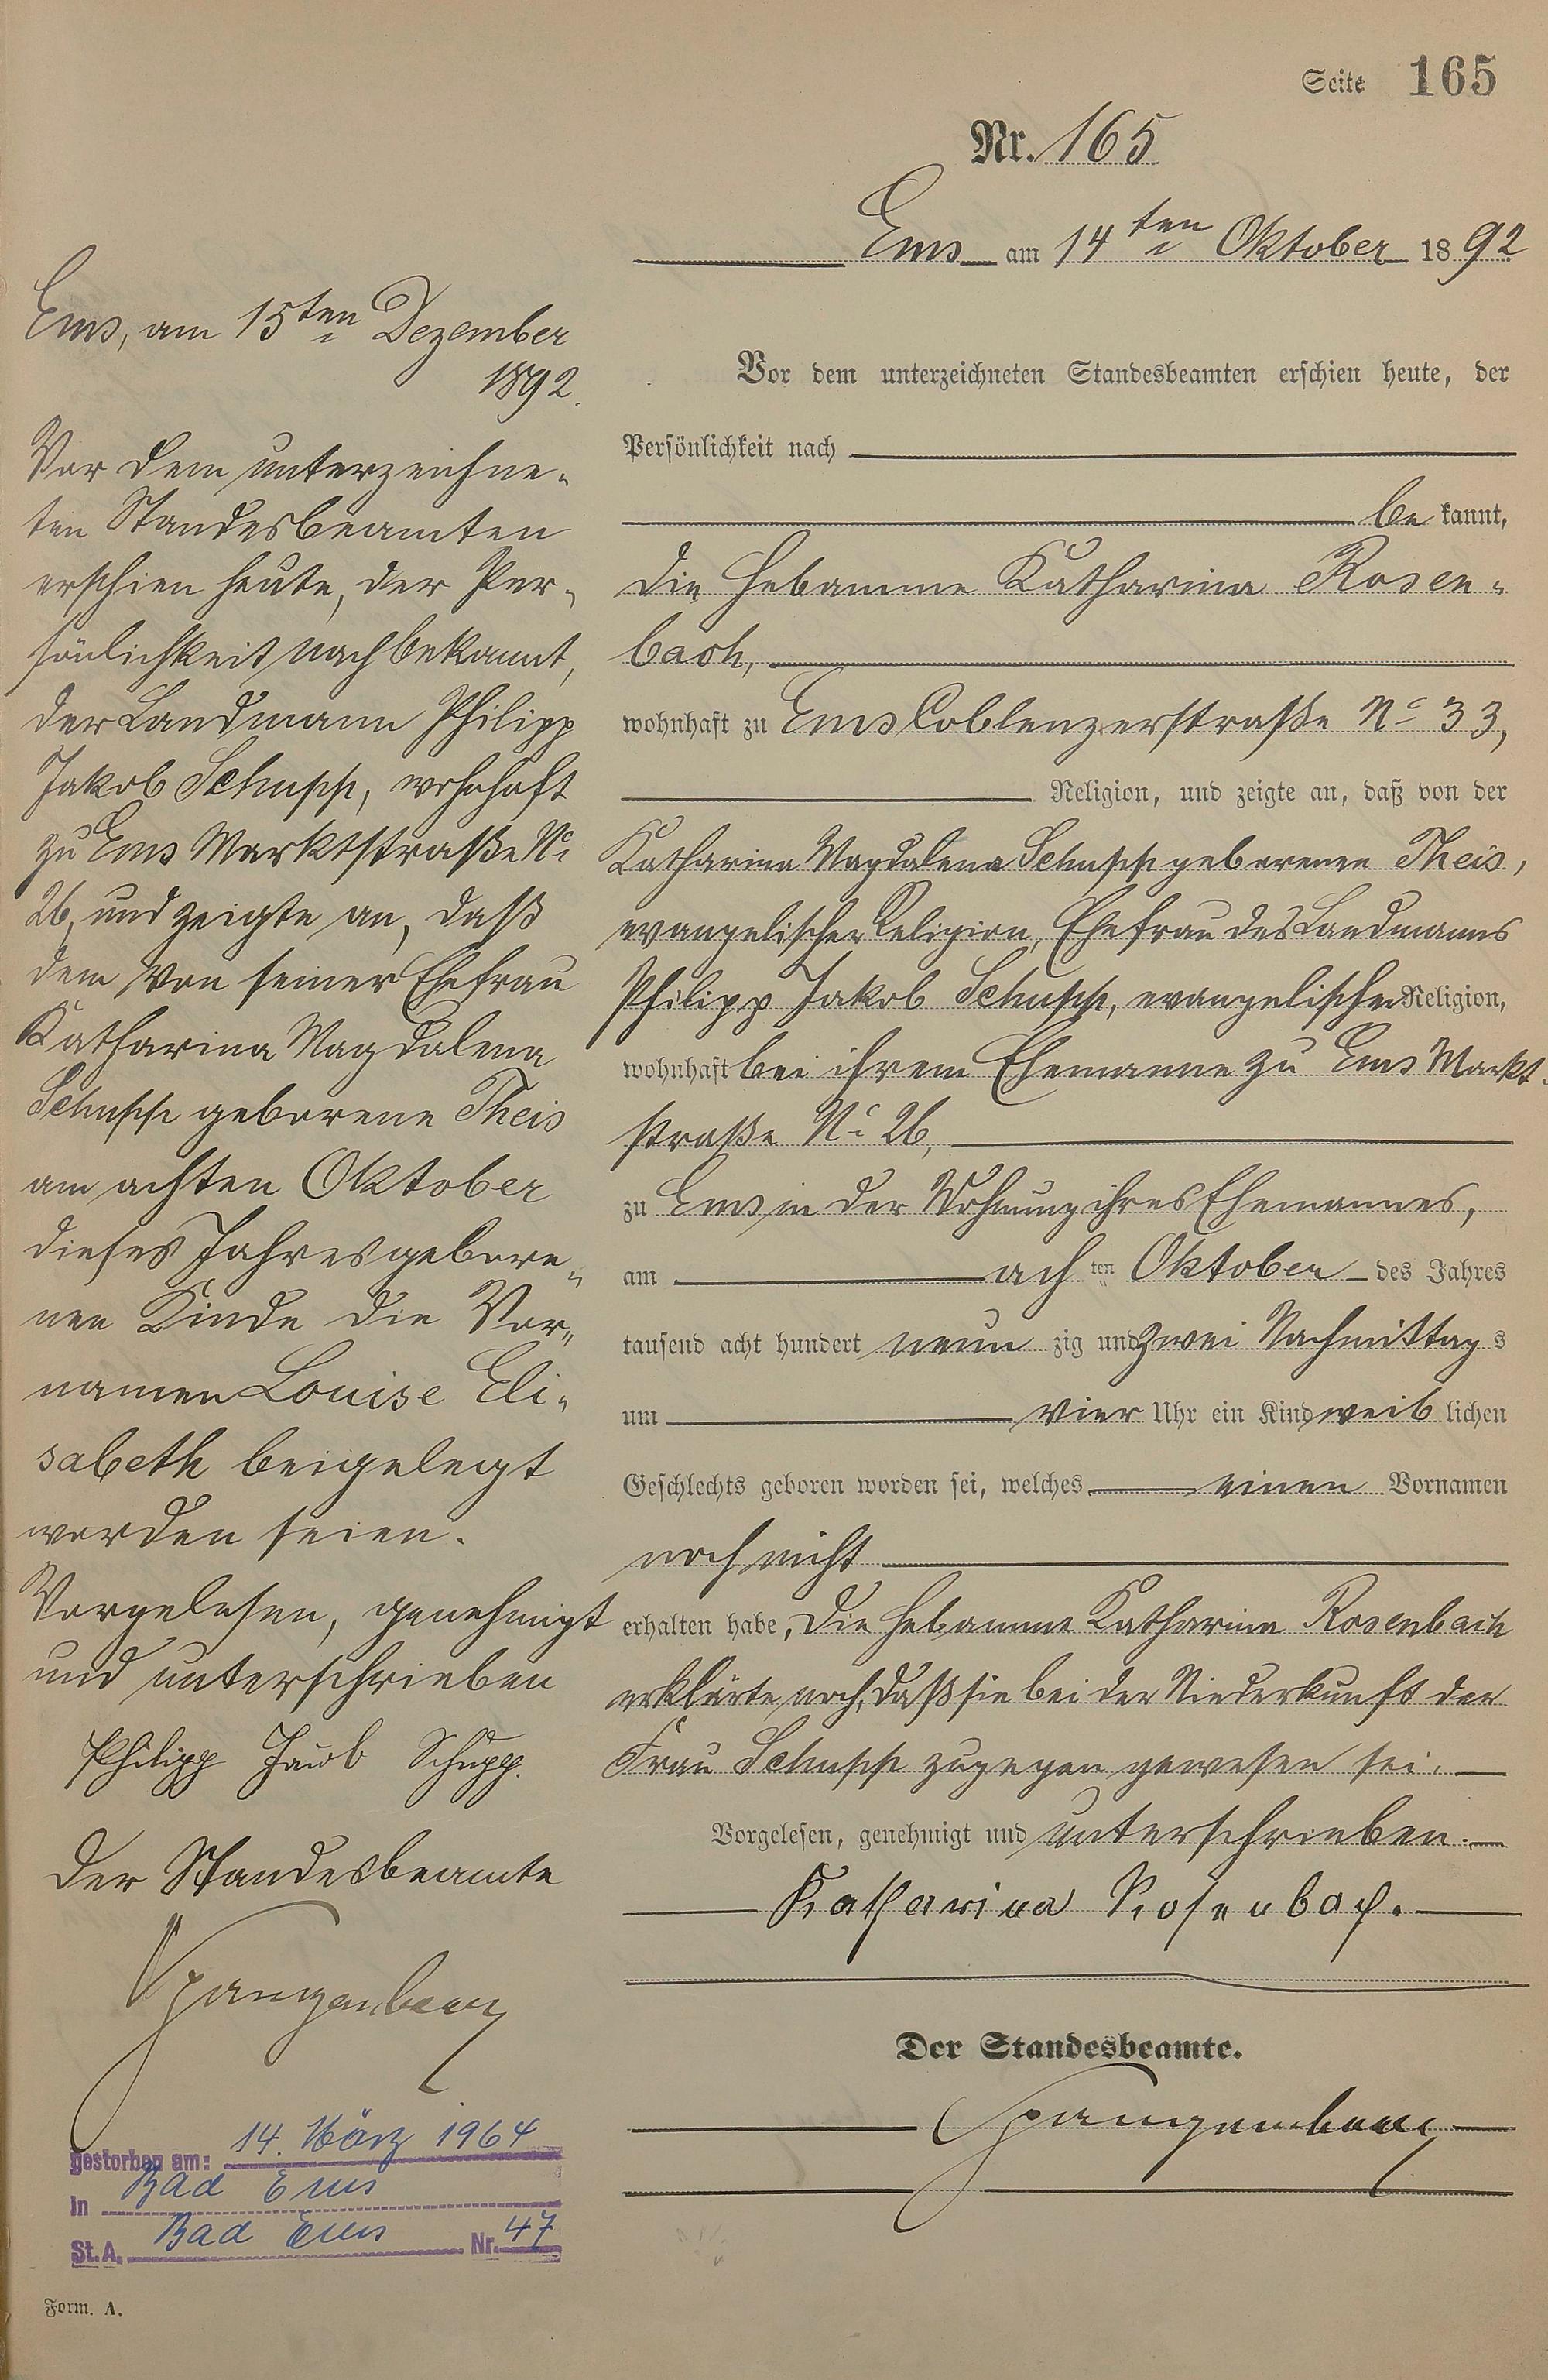 Seite 165
Nr. 165
Ems am 14ten Oktober 1892
Vor dem unterzeichneten Standesbeamten erschien heute, der
Persönlichkeit nach
bekannt,
die Hebamme Katharina Rosen-
bach,
wohnhaft zu Ems Coblenzerstraße No 33,
Religion, und zeigte an, daß von der
Katharina Magdalena Schupp geborenen Theis,
evangelischer Religion, Ehefrau des Landmanns
Philipp Jakob Schupp, evangelischer Religion,
wohnhaft bei ihrem Ehemanne zu Ems Markt-
straße No 26,
zu Ems in der Wohnung ihres Ehemannes,
am achten Oktober des Jahres
tausend acht hundert neunzig und zwei Nachmittags
um vier Uhr ein Kind weiblichen
Geschlechts geboren worden sei, welches einen Vornamen
noch nicht
erhalten habe, die Hebamme Katharina Rosenbach
erklärte noch, daß sie bei der Niederkunft der
Frau Schupp zugegen gewesen sei.
Vorgelesen, genehmigt und unterschrieben.
Katharina Rosenbach.
Der Standesbeamte.
Spangenberg
Ems, am 15ten Dezember
1892.
Vor dem unterzeichne-
ten Standesbeamten
erschien heute, der Per-
sönlichkeit nach bekannt,
der Landmann Philipp
Jakob Schupp, wohnhaft
zu Ems Marktstraße No
26, und zeigte an, daß
dem von seiner Ehefrau
Katharina Magdalena
Schupp geborene Theis
am achten Oktober
dieses Jahres gebore-
nen Kinde die Vor-
namen Louise Eli-
sabeth beigelegt
worden seien.
Vorgelesen, genehmigt
und unterschrieben
Philipp Jacob Schupp.
Der Standesbeamte
Spangenberg
gestorben am: 14. März 1964
in Bad Ems
St.A. Bad Ems Nr. 47
Form. A.